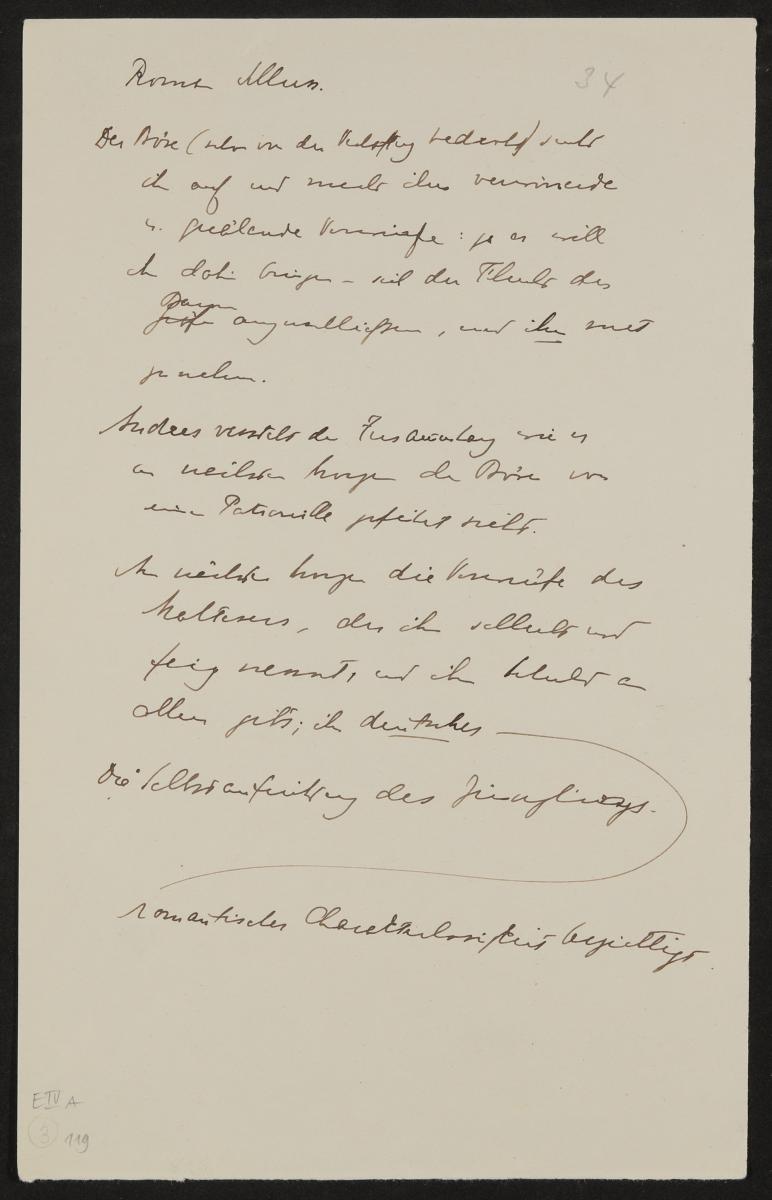 Roman Schluss.
34
Der Böse (schon von der Verhaftung bedroht) sucht
ihn auf und macht ihm verwirrende
u. quälende Vorwürfe: ja er will
ihn dahin bringen – sich der Flucht des
Paares anzuschliessen, und ihn mit
zu nehmen.
Anders versteht den Zusammenhang wie er
am nächsten Morgen den Bösen von
einer Patrouille geführt sieht.
Am nächsten Morgen die Vorwürfe des
Maltesers, der ihn schlecht und
feig nennt, und ihm Schuld an
allem gibt; ihn deutsches
Die Selbstaufreibung des Jünglings.
romantischer Charakterlosigkeit bezichtigt.
E IV A
3 119